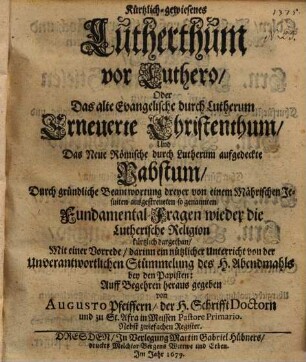 Kürtzlich-gewiesenes
Lutherthum
vor Luthero/
Oder
Das alte Evangelische durch Lutherum
Erneuerte Christenthum/
Und
Das Neue Römische durch Lutherum aufgedeckte
Pabstum/
Durch gründliche Beantwortung dreyer von einem Mährischen Je-
suiten ausgestreueten so genannten
Fundamental-Fragen wieder die
Lutherische Religion
kürtzlich dargethan/
Mit einer Vorrede/ darinn ein nützlicher Unterricht von der
Unverantwortlichen Stümmelung des H. Abendmahls
bey den Papisten:
Auff Begehren heraus gegeben
von
AUGUSTO Pfeiffern/ der H. Schrifft Doctorn
und zu St. Afra in Meissen Pastore Primario.
Nebst zwiefachen Register.
DRESDEN/ In Verlegung Martin Gabriel Hübners/
druckts Melchior Bergens Wittwe und Erben.
Im Jahr 1679.